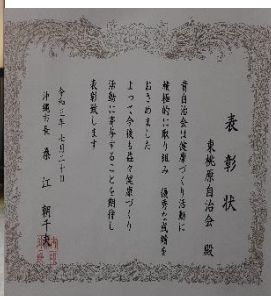 表彰状
東桃原自治会 殿
貴自治会は健康づくり活動に
積極的に取り組み 優秀な成績を
おさめました
よって今後も益々健康づくり
活動に寄与することを期待し
表彰致します
令和三年七月二十日
沖縄市長 桑江 朝千夫